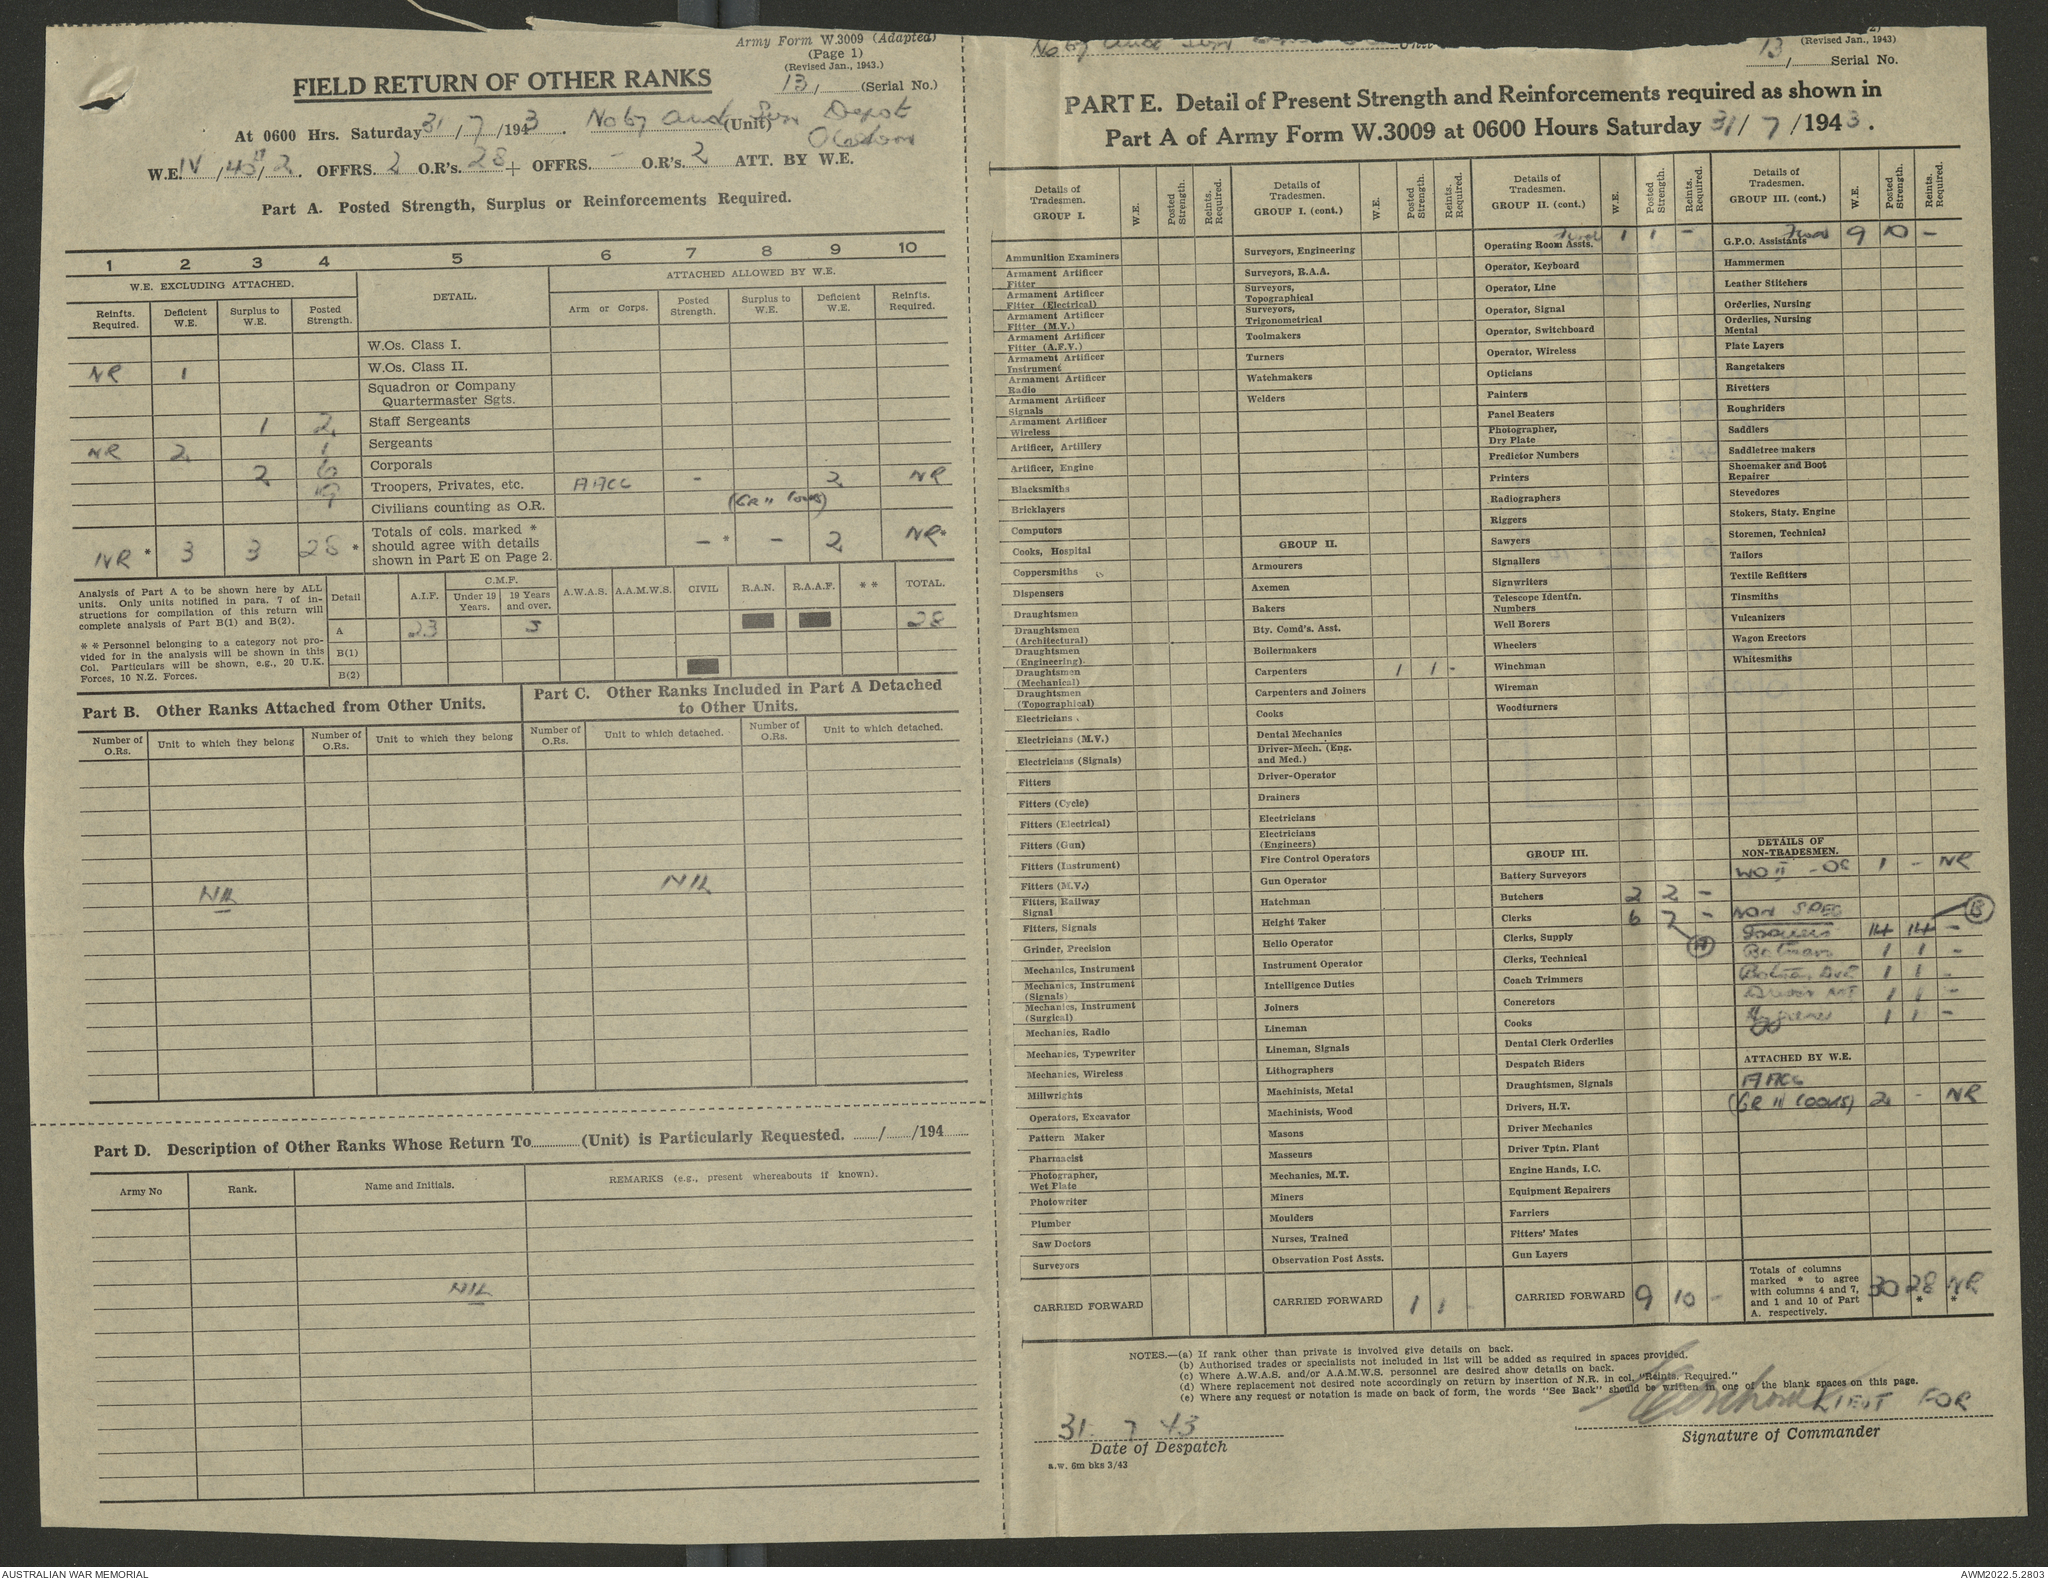 Army Form W.3009 (Adapted)
(Page 1)
(Revised Jan., 1943.)
FIELD RETURN OF OTHER RANKS
13, (Serial No.)
At 0600 Hrs. Saturday 31/7/1943. No 67 Aust (Unit) Depot
W.E. IV/45/2. OFFRS. 2 O.R's. 28 + OFFRS. - O.R's. 2 ATT. BY W.E.
Part A. Posted Strength, Surplus or Reinforcements Required.
1 2 3 4 5 6 7 8 9 10
W.E. EXCLUDING ATTACHED. DETAIL. ATTACHED ALLOWED BY W.E.
Reinfts. Required. Deficient W.E. Surplus to W.E. Posted Strength. Arm or Corps. Posted Strength. Surplus to W.E. Deficient W.E. Reinfts. Required.
W.Os. Class I.
NR 1 W.Os. Class II.
Squadron or Company Quartermaster Sgts.
1 2 Staff Sergeants
NR 2 1 Sergeants
2 6 Corporals
19 Troopers, Privates, etc. AACC - 2 NR
Civilians counting as O.R. (GR II Cooks)
NR * 3 3 28 * Totals of cols. marked * should agree with details shown in Part E on Page 2. - * - 2 NR *
Analysis of Part A to be shown here by ALL units. Only units notified in para. 7 of instructions for compilation of this return will complete analysis of Part B(1) and B(2).
* * Personnel belonging to a category not provided for in the analysis will be shown in this Col. Particulars will be shown, e.g., 20 U.K. Forces, 10 N.Z. Forces.
Detail A.I.F. C.M.F. Under 19 Years. 19 Years and over. A.W.A.S. A.A.M.W.S. CIVIL R.A.N. R.A.A.F. * * TOTAL.
A 23 5 28
B(1)
B(2)
Part B. Other Ranks Attached from Other Units.
Part C. Other Ranks Included in Part A Detached to Other Units.
Number of O.Rs. Unit to which they belong Number of O.Rs. Unit to which they belong Number of O.Rs. Unit to which detached. Number of O.Rs. Unit to which detached.
NIL NIL
Part D. Description of Other Ranks Whose Return To (Unit) is Particularly Requested. / /194
Army No Rank. Name and Initials. REMARKS (e.g., present whereabouts if known).
NIL
No 67 Aust
(Revised Jan., 1943)
13, Serial No.
PART E. Detail of Present Strength and Reinforcements required as shown in
Part A of Army Form W.3009 at 0600 Hours Saturday 31/7/1943.
Details of Tradesmen. GROUP I. W.E. Posted Strength. Reints. Required.
Ammunition Examiners
Armament Artificer Fitter
Armament Artificer Fitter (Electrical)
Armament Artificer Fitter (M.V.)
Armament Artificer Fitter (A.F.V.)
Armament Artificer Instrument
Armament Artificer Radio
Armament Artificer Signals
Armament Artificer Wireless
Artificer, Artillery
Artificer, Engine
Blacksmiths
Bricklayers
Computors
Cooks, Hospital
Coppersmiths
Dispensers
Draughtsmen
Draughtsmen (Architectural)
Draughtsmen (Engineering)
Draughtsmen (Mechanical)
Draughtsmen (Topographical)
Electricians
Electricians (M.V.)
Electricians (Signals)
Fitters
Fitters (Cycle)
Fitters (Electrical)
Fitters (Gun)
Fitters (Instrument)
Fitters (M.V.)
Fitters, Railway Signal
Fitters, Signals
Grinder, Precision
Mechanics, Instrument
Mechanics, Instrument (Signals)
Mechanics, Instrument (Surgical)
Mechanics, Radio
Mechanics, Typewriter
Mechanics, Wireless
Millwrights
Operators, Excavator
Pattern Maker
Pharmacist
Photographer, Wet Plate
Photowriter
Plumber
Saw Doctors
Surveyors
CARRIED FORWARD
Details of Tradesmen. GROUP I. (cont.) W.E. Posted Strength. Reints. Required.
Surveyors, Engineering
Surveyors, R.A.A.
Surveyors, Topographical
Surveyors, Trigonometrical
Toolmakers
Turners
Watchmakers
Welders
GROUP II.
Armourers
Axemen
Bakers
Bty. Comd's. Asst.
Boilermakers
Carpenters 1 1 -
Carpenters and Joiners
Cooks
Dental Mechanics
Driver-Mech. (Eng. and Med.)
Driver-Operator
Drainers
Electricians
Electricians (Engineers)
Fire Control Operators
Gun Operator
Hatchman
Height Taker
Hello Operator
Instrument Operator
Intelligence Duties
Joiners
Lineman
Lineman, Signals
Lithographers
Machinists, Metal
Machinists, Wood
Masons
Masseurs
Mechanics, M.T.
Miners
Moulders
Nurses, Trained
Observation Post Assts.
CARRIED FORWARD 1 1 -
Details of Tradesmen. GROUP II. (cont.) W.E. Posted Strength. Reints. Required.
Fwd 1 1 -
Operating Room Assts.
Operator, Keyboard
Operator, Line
Operator, Signal
Operator, Switchboard
Operator, Wireless
Opticians
Painters
Panel Beaters
Photographer, Dry Plate
Predictor Numbers
Printers
Radiographers
Riggers
Sawyers
Signallers
Signwriters
Telescope Identfn. Numbers
Well Borers
Wheelers
Winchman
Wireman
Woodturners
GROUP III.
Battery Surveyors
Butchers 2 2 -
Clerks 6 7 -
Clerks, Supply (A)
Clerks, Technical
Coach Trimmers
Concretors
Cooks
Dental Clerk Orderlies
Despatch Riders
Draughtsmen, Signals
Drivers, H.T.
Driver Mechanics
Driver Tptn. Plant
Engine Hands, I.C.
Equipment Repairers
Farriers
Fitters' Mates
Gun Layers
CARRIED FORWARD 9 10 -
Details of Tradesmen. GROUP III. (cont.) W.E. Posted Strength. Reints. Required.
Fwd 9 10 -
G.P.O. Assistants
Hammermen
Leather Stitchers
Orderlies, Nursing
Orderlies, Nursing Mental
Plate Layers
Rangetakers
Rivetters
Roughriders
Saddlers
Saddletree makers
Shoemaker and Boot Repairer
Stevedores
Stokers, Staty. Engine
Storemen, Technical
Tailors
Textile Refitters
Tinsmiths
Vulcanizers
Wagon Erectors
Whitesmiths
DETAILS OF NON-TRADESMEN.
WO II - OR 1 - NR
NON SPEC (B)
14 14 -
Batman 1 1 -
Batman Dvr 1 1 -
Driver MT 1 1 -
Hygiene 1 1 -
ATTACHED BY W.E.
AACC
(GR II COOKS) 2 - NR
Totals of columns marked * to agree with columns 4 and 7, and 1 and 10 of Part A. respectively. 30 28 * NR *
NOTES.—(a) If rank other than private is involved give details on back.
(b) Authorised trades or specialists not included in list will be added as required in spaces provided.
(c) Where A.W.A.S. and/or A.A.M.W.S. personnel are desired show details on back.
(d) Where replacement not desired note accordingly on return by insertion of N.R. in col. "Reints. Required."
(e) Where any request or notation is made on back of form, the words "See Back" should be written in one of the blank spaces on this page.
31. 7 43
Date of Despatch
LIEUT FOR
Signature of Commander
a.w. 6m bks 3/43
AUSTRALIAN WAR MEMORIAL
AWM2022.5.2803